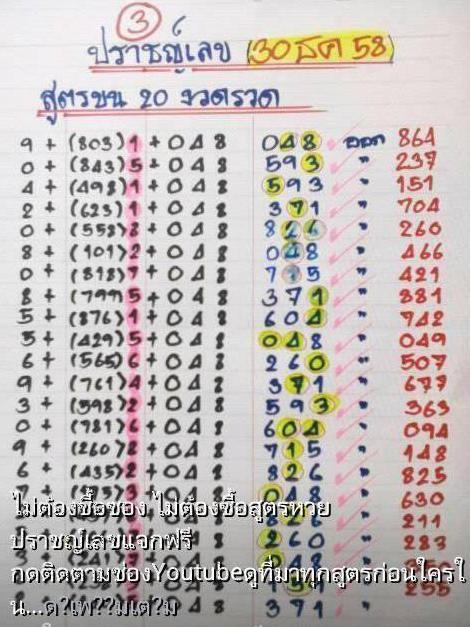 3
ปราชญ์เลข (30 ธค 58)
สูตรชน 20 งวดรวด
9 + (803)1 + 048 048 ออก 864
0 + (843)5 + 048 593 " 237
4 + (498)1 + 048 593 " 151
2 + (623)1 + 048 371 " 704
0 + (558)8 + 048 826 " 260
8 + (101)2 + 048 048 " 466
0 + (818)7 + 048 715 " 421
8 + (799)5 + 048 371 " 881
5 + (876)1 + 048 604 " 742
5 + (429)5 + 048 048 " 049
6 + (565)6 + 048 260 " 507
9 + (761)4 + 048 371 " 677
3 + (598)2 + 048 593 " 363
0 + (781)6 + 048 604 " 094
9 + (260)8 + 048 715 " 148
6 + (435)2 + 048 826 " 825
048 " 630
ไม่ต้องซื้อซอง ไม่ต้องซื้อสูตรหวย
826 " 211
ปราชญ์เลขแจกฟรี
260 " 283
กดติดตามช่องYoutubeดูที่มาทุกสูตรก่อนใครใ
น...ด?เพ??มเต?ม
371 "